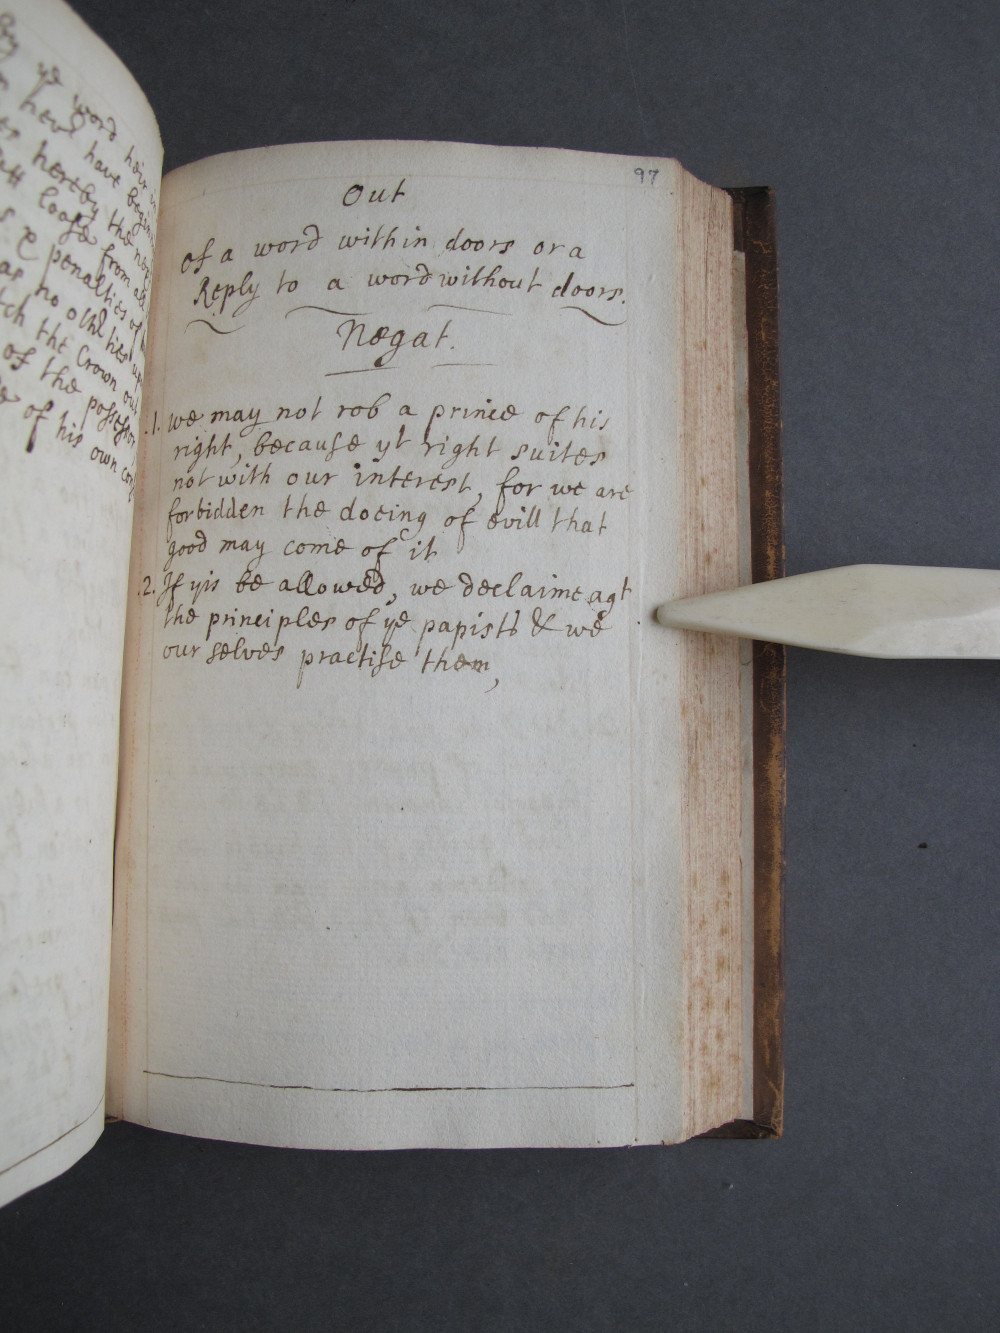 By ye word heir in
have begin
hereby the nex
loose from all
& penalties of
as no othr ties up
tch the Crown out
of the possessor
of his own
97
Out
Of a word within doors or a
Reply to a word without doors.
Negat.
.1. we may not rob a prince of his
right, because yt right suites
not with our interest, for we are
forbidden the doeing of evill that
good may come of it
.2. If yis be allowed, we declaime agt
the principles of ye papists & we
our selves practise them,